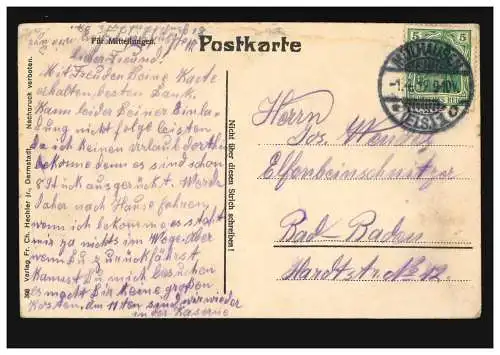 Für Mitteilungen.
Postkarte
5
MÜLHAUSEN
9-10V.
(ELS.) 1
Lieber Freund!
Mit Freuden Deine Karte
erhalten, besten Dank.
Kann leider Deiner Einla-
dung nicht folge leisten
da ich keinen urlaub dorthin
bekomme denn es sind schon
8 Stück ausgerückt. Werde
daher nach Hause fahren,
wenn ich bekomme es steht
mir ja nichts im Wege. Aber
wenn Du zurückfährst
Kannst Du mich besuchen
es macht Dir keine großen
Kosten, am 11ten sind wir wieder
in der Kaserne
Nicht über diesen Strich schreiben!
Herrn
Jos. Wenditz
Elfenbeinschnitzer
Bad-Baden
Hardtstr. No 12.
Verlag Fr. Ch. Hechler jr., Darmstadt. Nachdruck verboten.